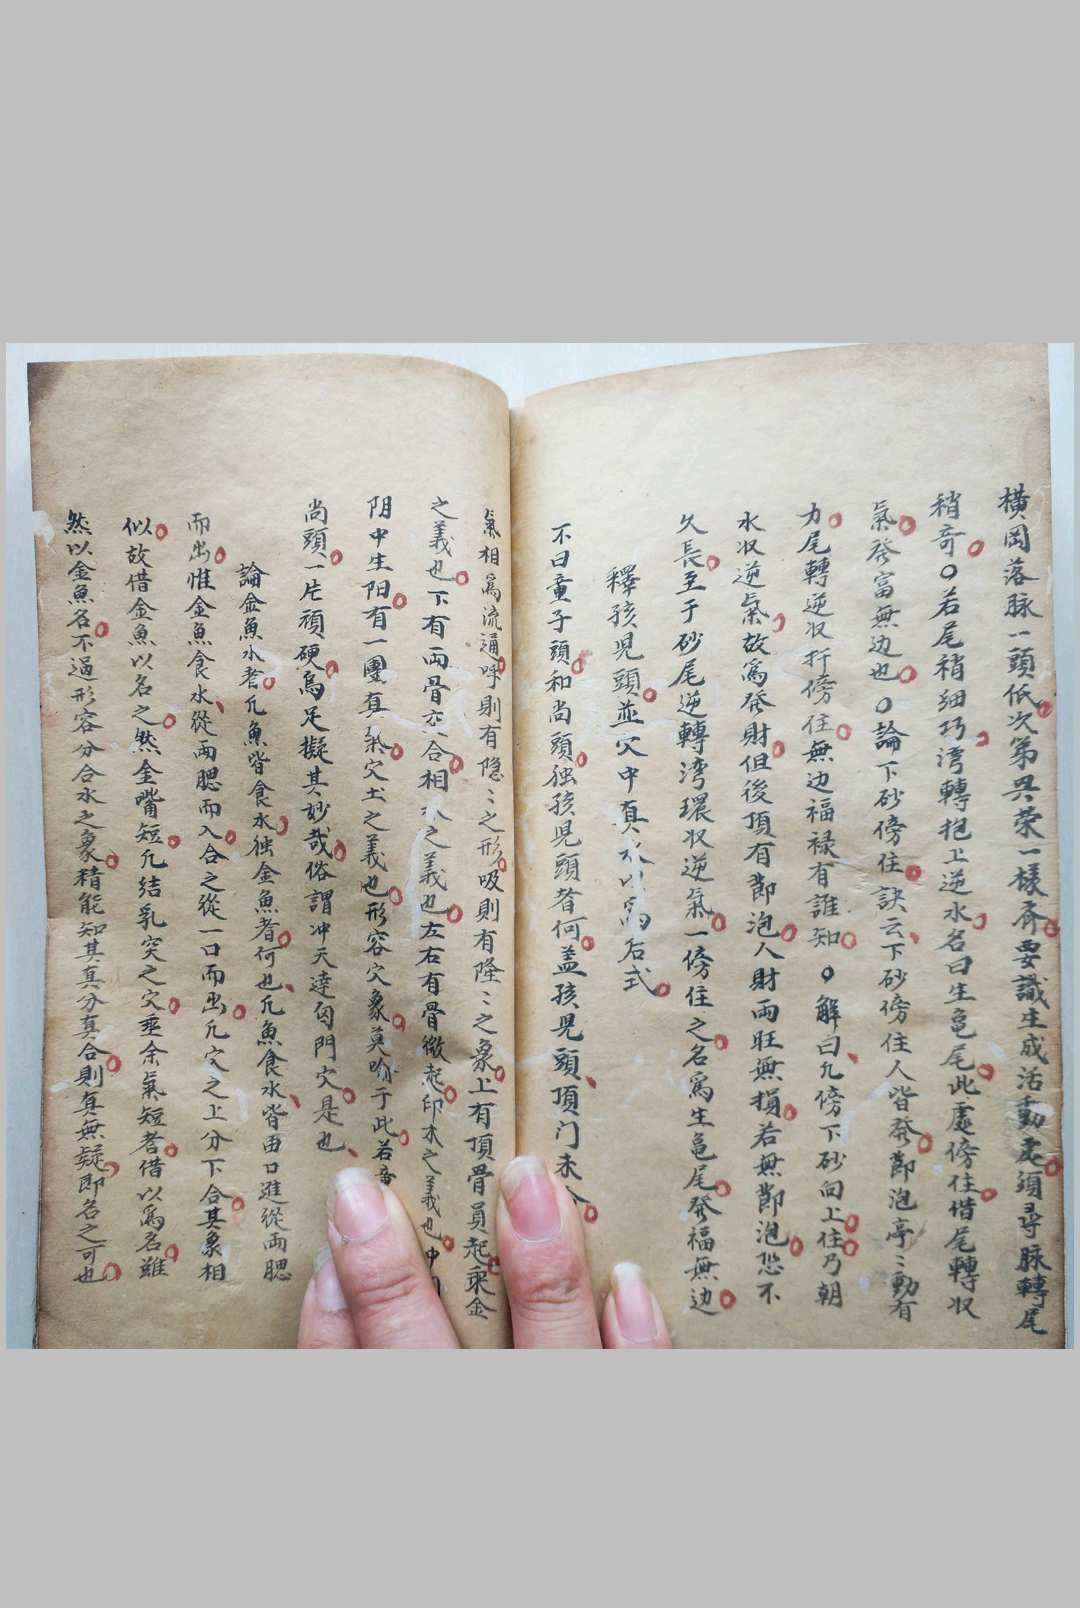 橫岡落脉一頭低次第兴荣一樣齊要識生成活動處須尋脉轉尾
稍奇○若尾稍细巧湾轉抱上逆水名曰生龟尾此處傍住借尾轉収
氣發富無边也○論下砂傍住訣云下砂傍住人皆發節泡亭〻動有
力尾轉逆収折傍住無边福禄有誰知○解曰凢傍下砂向上住乃朝
水収逆氣故為發財但後頂有節泡人財両旺無損若無節泡恐不
久長至于砂尾逆轉湾環収逆氣一傍住之名為生龟尾發福無边
釋孩児頭並穴中真水以為后式
不曰童子頭和尚頭独孩児頭者何盖孩児頭頂门未合
氣相為流通呼則有隐〻之形吸則有隆〻之象上有頂骨員起乘金
之義也下有両骨交合相水之義也左右有骨微起印木之義也中
阴中生阳有一團真氣穴土之義也形容穴象莫喻于此若童
尚頭一片頑硬烏足擬其妙哉俗謂冲天達囟門穴是也
論金魚水者凢魚皆食水独金魚者何也凢魚食水皆由口進從両腮
而出惟金魚食水從両腮而入合之從一口而出凢穴之上分下合其象相
似故借金魚以名之然金嘴短凢結乳突之穴乘余氣短者借以為名雖
然以金魚名不過形容分合水之象精能知其真分真合則真無疑即名之可也